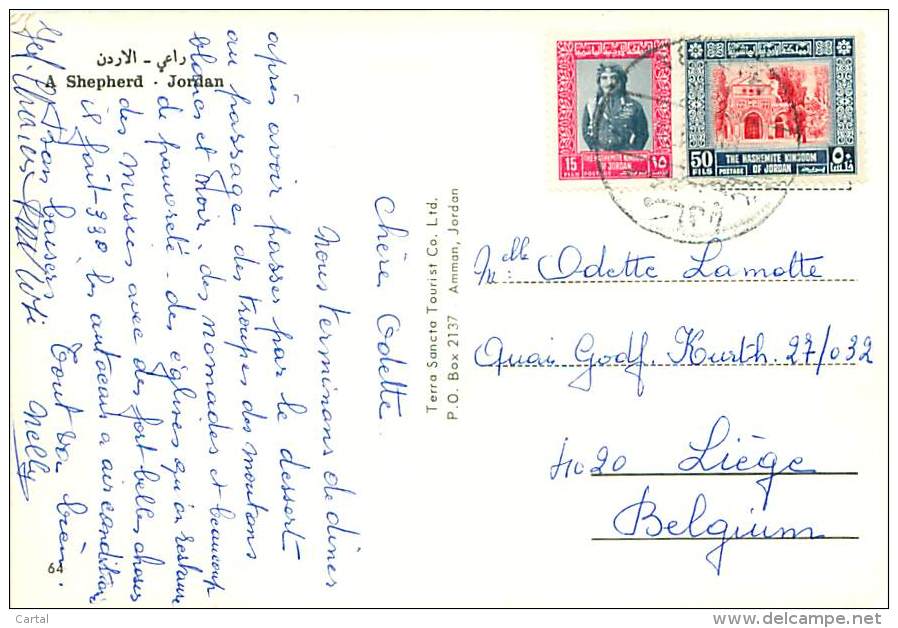 راعي - الاردن
A Shepherd · Jordan
Chère Odette.
Nous terminons de dîner
après avoir passer par le dessert
au passage des troupes des moutons
blancs et noir, des nomades et beaucoup
de pauvreté - des églises qu'on restaure
des musées avec des fort belles choses
il fait 330 les autocars a air condition
Bon baisers Tout va bien.
Nelly
64
Terra Sancta Tourist Co. Ltd.
P.O. Box 2137 Amman, Jordan
15 ١٥
FILS POSTAGE
THE HASHEMITE KINGDOM
OF JORDAN
50 ٥٠
FILS POSTAGE
THE HASHEMITE KINGDOM
OF JORDAN
Melle: Odette Lamotte
Quai Godf. Kurth. 27/032
4020 Liège
Belgium
Cartal
www.delcampe.net